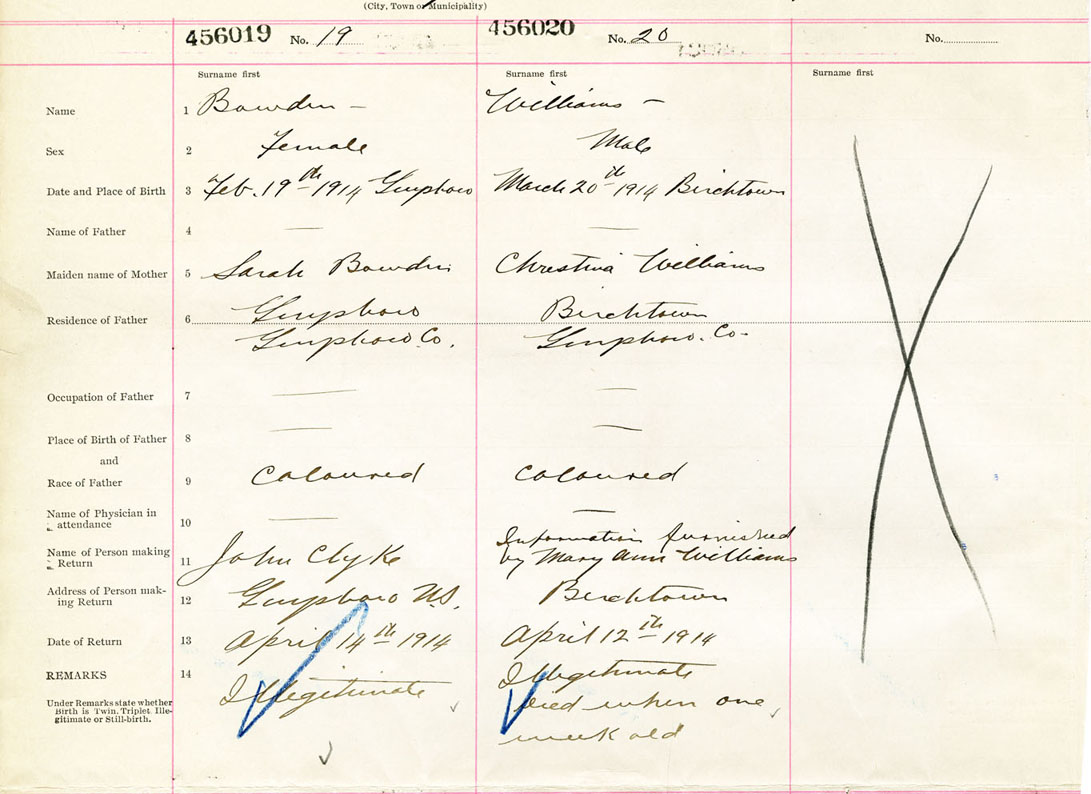 (City, Town or Municipality)
456019 No. 19 456020 No. 20 No.
Surname first Surname first Surname first
Name 1 Bowden — Williams —
Sex 2 Female Male
Date and Place of Birth 3 Feb. 19th 1914 Guysboro March 20th 1914 Birchtown
Name of Father 4 — —
Maiden name of Mother 5 Sarah Bowden Christina Williams
Residence of Father 6 Guysboro Birchtown
Guysboro Co. Guysboro. Co-
Occupation of Father 7 — —
Place of Birth of Father 8 — —
and
Race of Father 9 Coloured Coloured
Name of Physician in attendance 10 — —
Name of Person making Return 11 John Clyke Information furnished
by Mary Ann Williams
Address of Person mak-
ing Return 12 Guysboro N.S. Birchtown
Date of Return 13 April 14th 1914 April 12th 1914
REMARKS 14 Illegitimate Illegitimate
Under Remarks state whether
Birth is Twin, Triplet, Ille-
gitimate or Still-birth.
died when one
week old